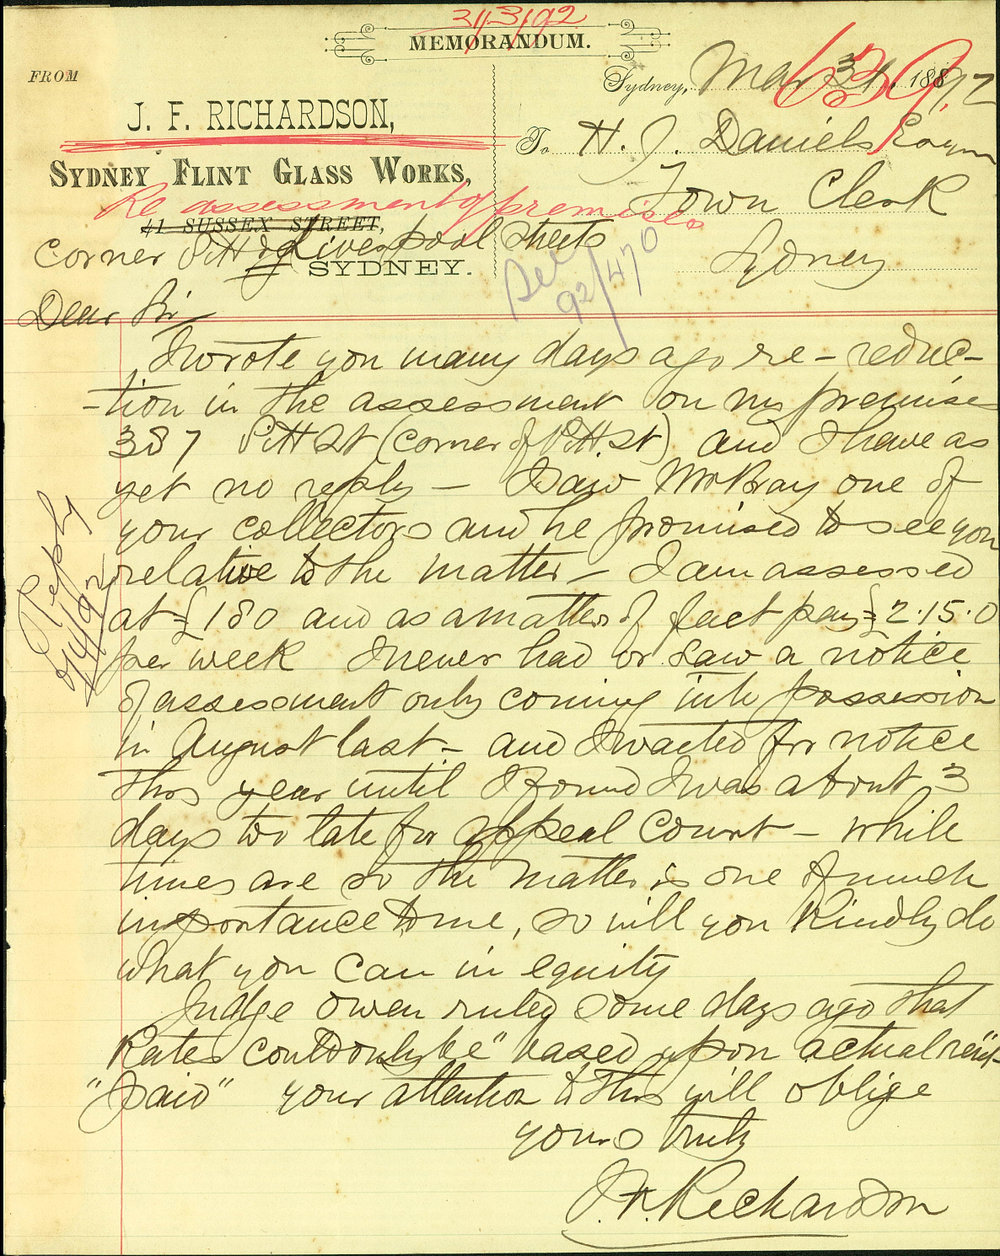 31/3/92
MEMORANDUM.
FROM
Sydney, Mar 31 1892
639
J. F. RICHARDSON,
To H. J. Daniels Esqre
SYDNEY FLINT GLASS WORKS,
Town Clerk
Re assessment of premises
41 SUSSEX STREET,
Corner Pitt & Liverpool Streets
SYDNEY.
Sydney
92/470
Dear Sir
I wrote you many days ago re-reduc-
-tion in the assessment on my premises
387 Pitt St (corner of Pitt st) and I have as
yet no reply – I saw Mr Bray one of
your collectors and he promised to see you
relative to the matter – I am assessed
at £180 and as a matter of fact pay £2.15.0
per week I never had or saw a notice
of assessment only coming into possession
in August last – and I waited for notice
this year until I found I was about 3
days too late for appeal court – while
times are so the matter is one of much
importance to me, so will you kindly do
what you can in equity
Judge Owen ruled some days ago that
Rates could only be "based upon actual rent
"paid" your attention to this will oblige
yours truly
J. F. Richardson
Reply
4/92